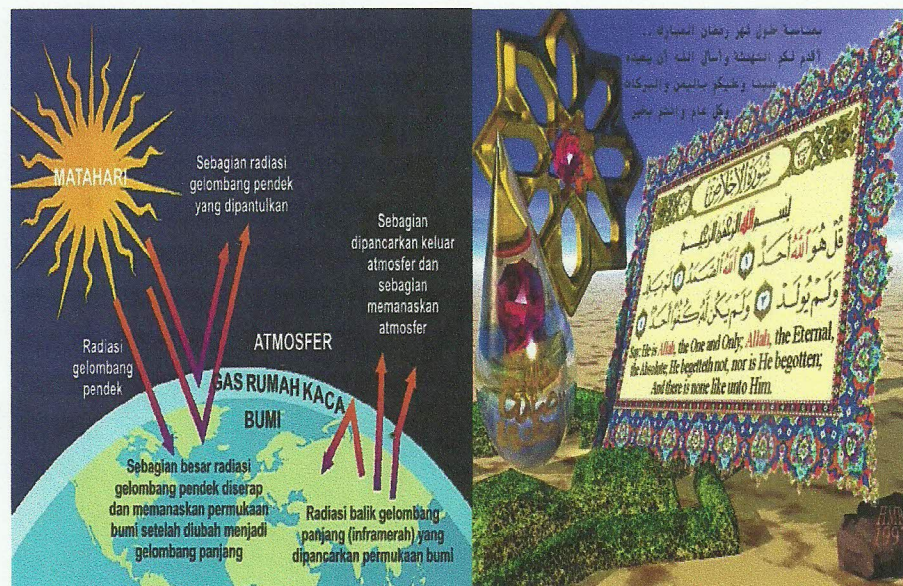 MATAHARI
Sebagian radiasi
gelombang pendek
yang dipantulkan
Sebagian
dipancarkan keluar
atmosfer dan
sebagian
memanaskan
atmosfer
Radiasi
gelombang
pendek
ATMOSFER
GAS RUMAH KACA
BUMI
Sebagian besar radiasi
gelombang pendek diserap
dan memanaskan permukaan
bumi setelah diubah menjadi
gelombang panjang
Radiasi balik gelombang
panjang (inframerah) yang
dipancarkan permukaan bumi
بمناسبة حلول شهر رمضان المبارك ..
أقدم لكم التهنئة وأسأل الله أن يعيده
علينا وعليكم باليمن والبركات
وكل عام وأنتم بخير
سورة الإخلاص
بسم الله الرحمن الرحيم
قُلْ هُوَ اللَّهُ أَحَدٌ ١ اللَّهُ الصَّمَدُ ٢ لَمْ يَلِدْ
وَلَمْ يُولَدْ ٣ وَلَمْ يَكُن لَّهُ كُفُوًا أَحَدٌ ٤
Say: He is Allah, the One and Only; Allah, the Eternal,
the Absolute; He begetteth not, nor is He begotten;
And there is none like unto Him.